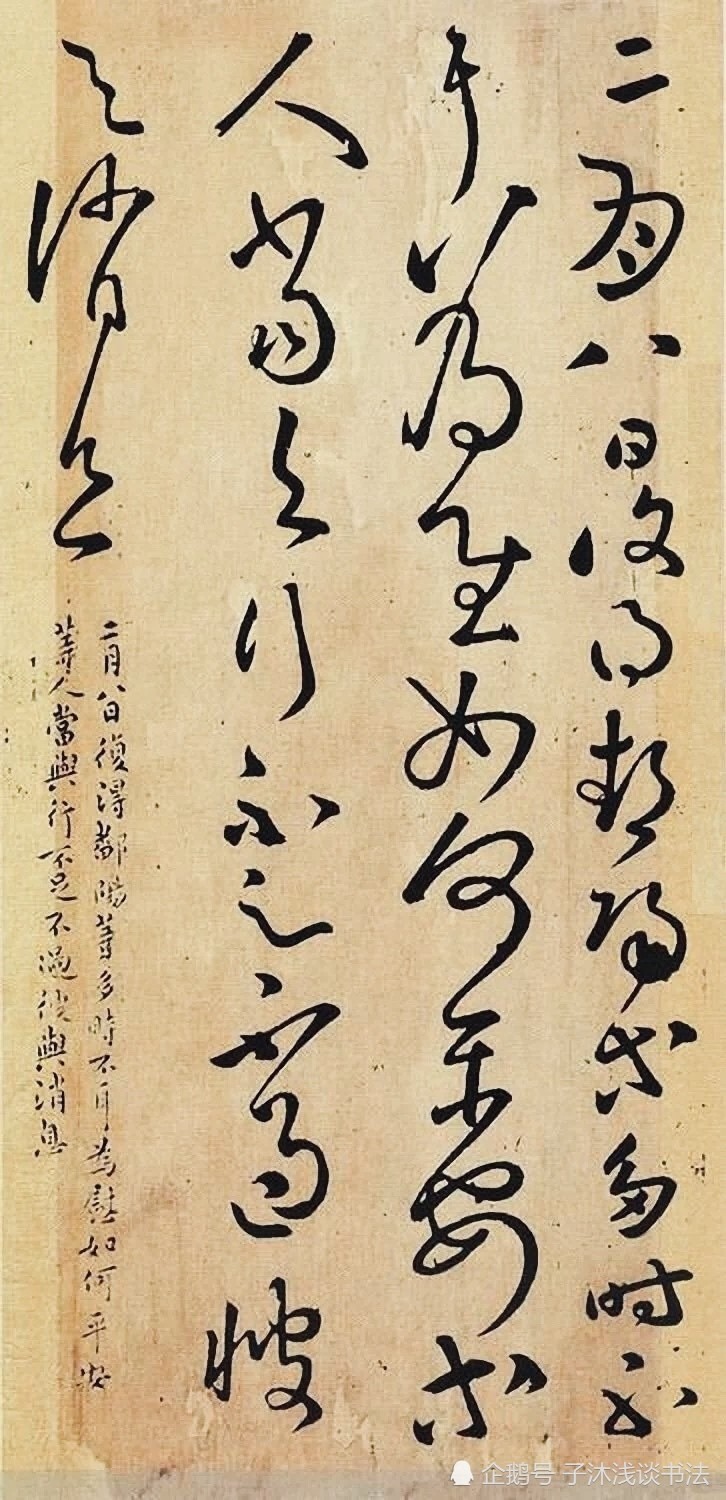 二月八日復得鄱陽等多時不
耳為慰如何平安等
人當與行不足不過彼
與消息
二月八日復得鄱陽等多時不耳為慰如何平安
等人當與行不足不過彼與消息
企鹅号 子沐浅谈书法